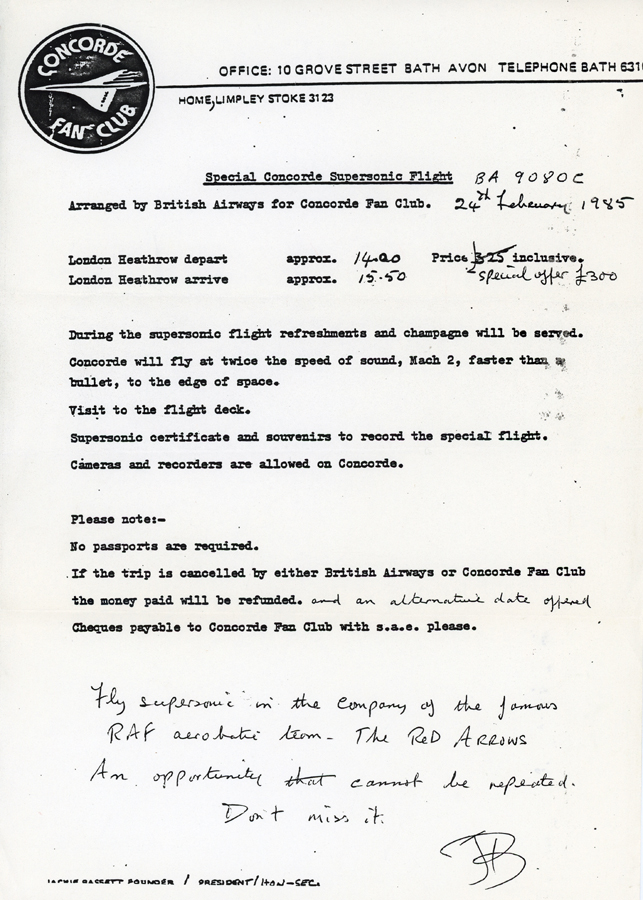 CONCORDE
FAN CLUB
OFFICE: 10 GROVE STREET BATH AVON TELEPHONE BATH 631
HOME, LIMPLEY STOKE 3123
Special Concorde Supersonic Flight BA 9080C
Arranged by British Airways for Concorde Fan Club. 24th February 1985
London Heathrow depart approx. 14.00 Price £325 inclusive.
London Heathrow arrive approx. 15.50 special offer £300
During the supersonic flight refreshments and champagne will be served.
Concorde will fly at twice the speed of sound, Mach 2, faster than a
bullet, to the edge of space.
Visit to the flight deck.
Supersonic certificate and souvenirs to record the special flight.
Cameras and recorders are allowed on Concorde.
Please note:-
No passports are required.
If the trip is cancelled by either British Airways or Concorde Fan Club
the money paid will be refunded. and an alternative date offered
Cheques payable to Concorde Fan Club with s.a.e. please.
Fly supersonic in the company of the famous
RAF aerobatic team - THE RED ARROWS
An opportunity that cannot be repeated.
Don't miss it.
JB
BASSETT FOUNDER / PRESIDENT/HON-SEC.